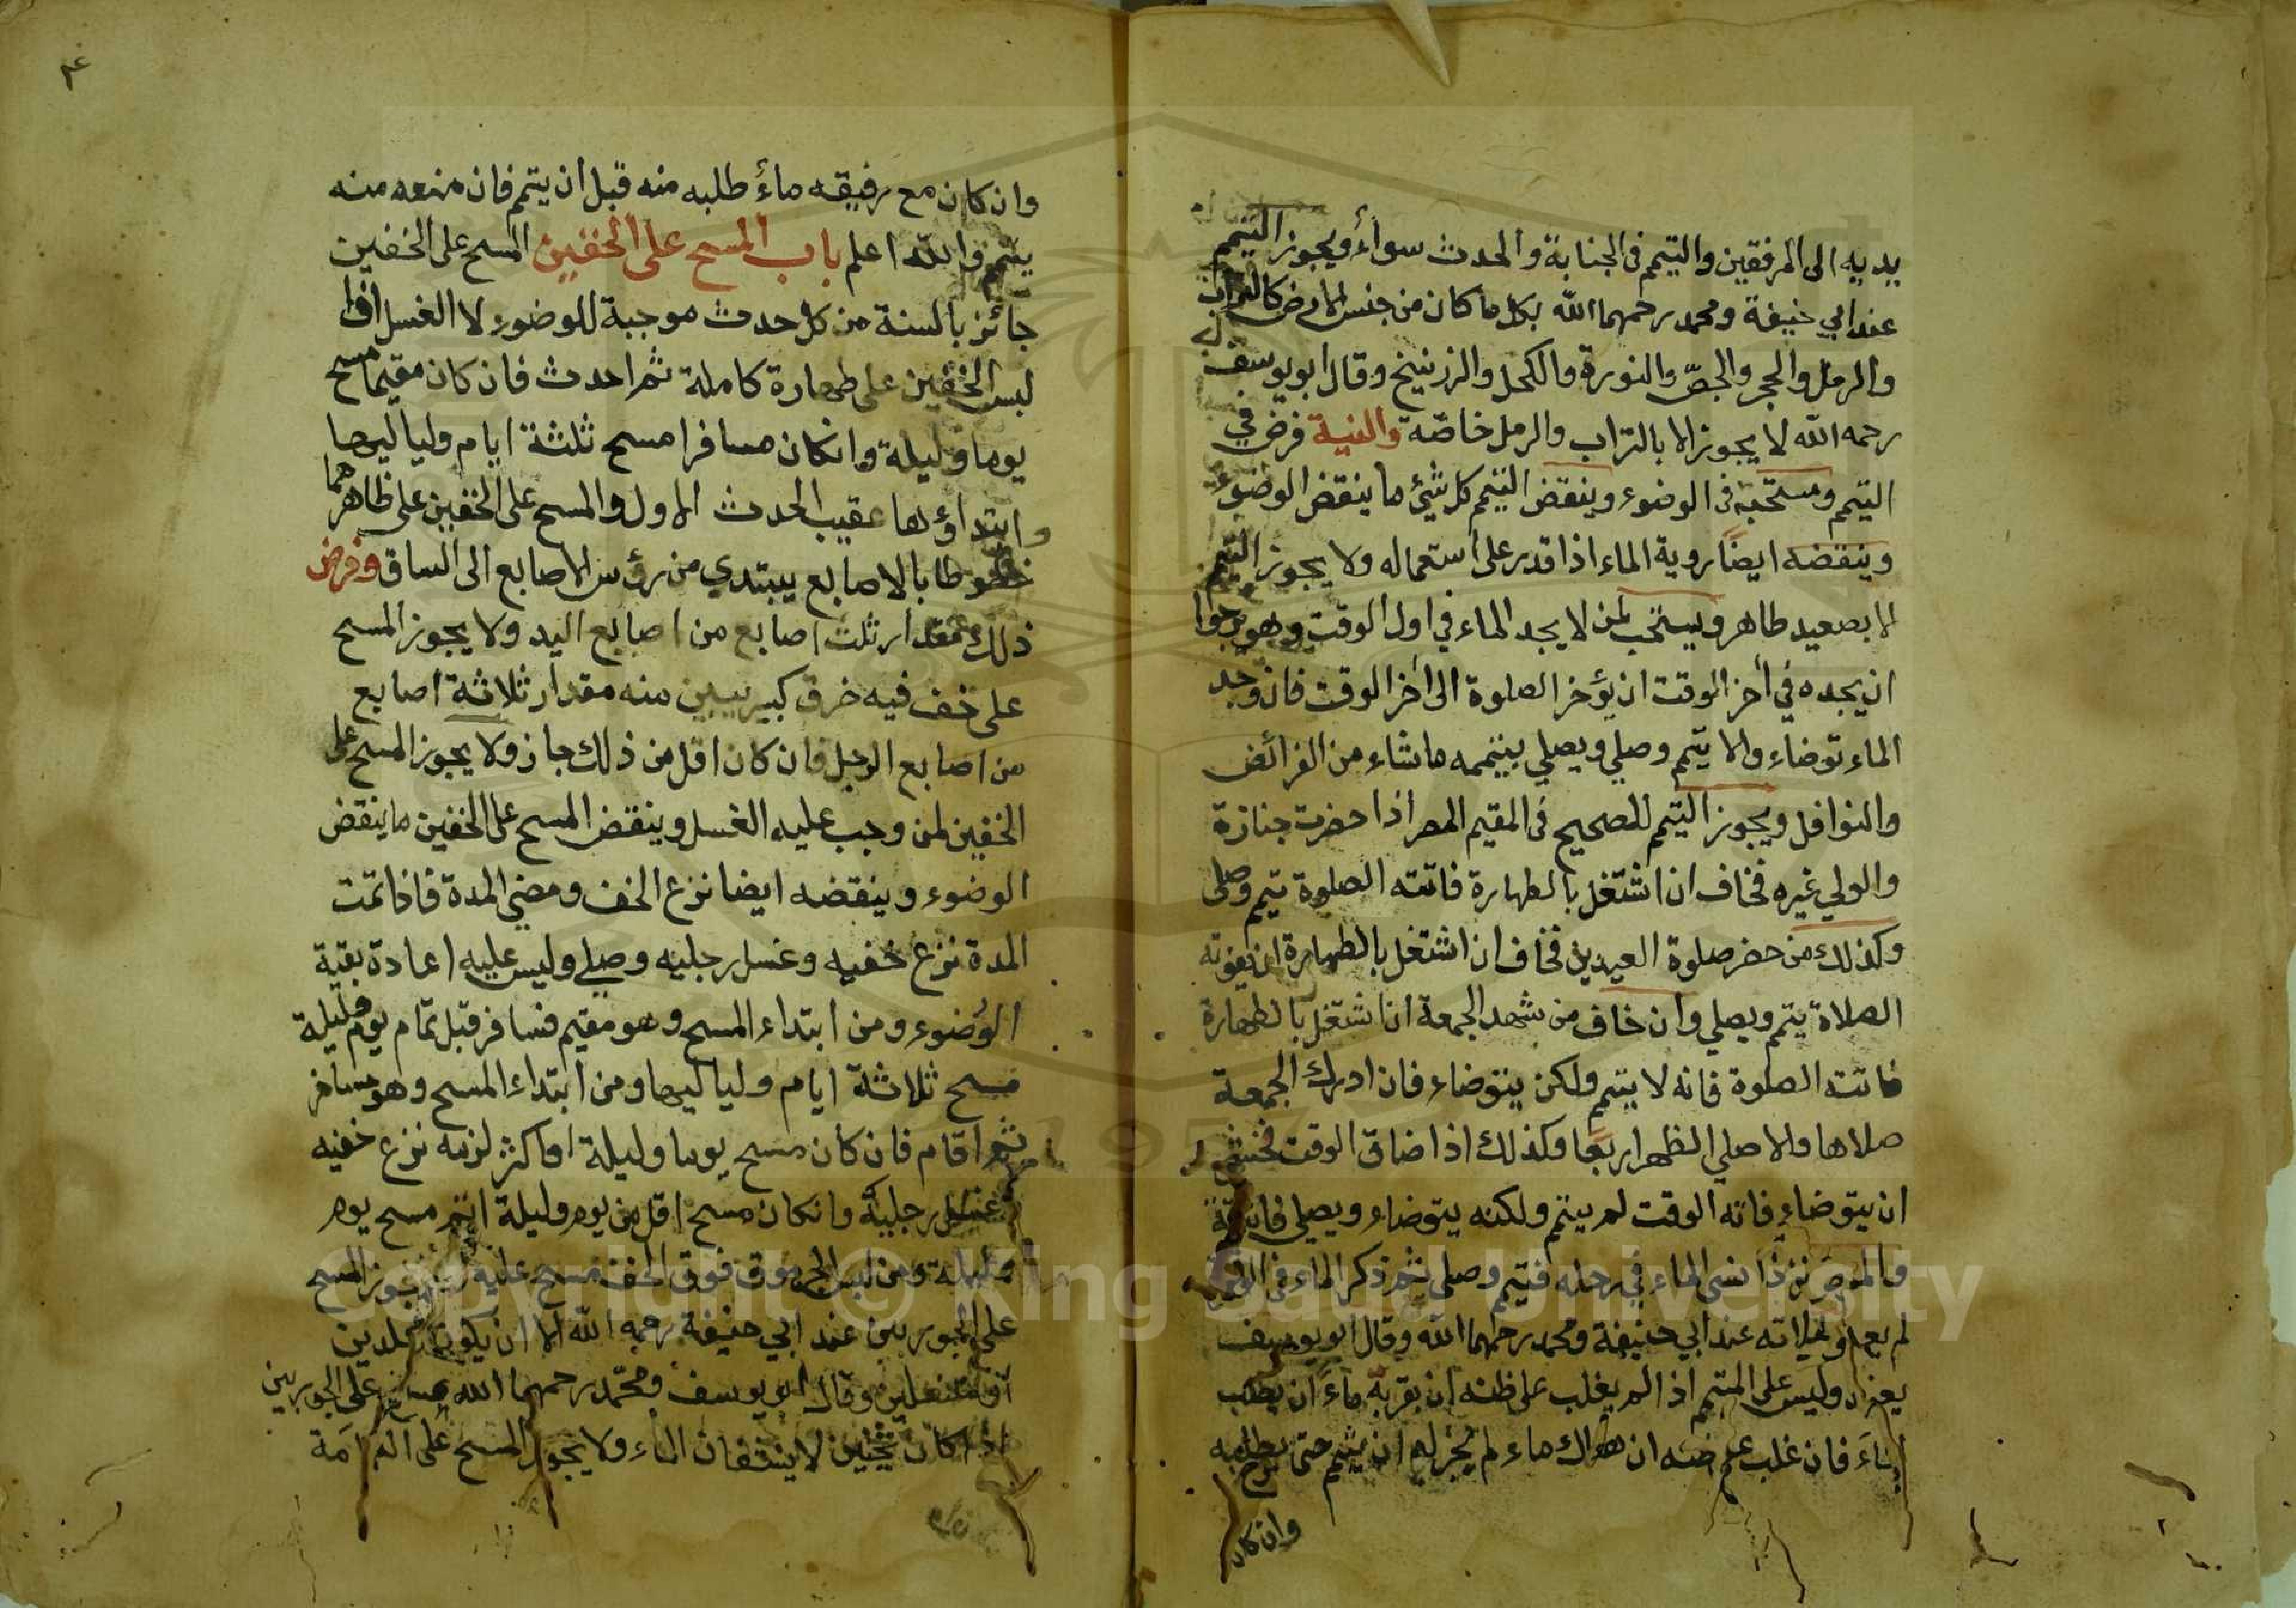 يديه الى المرفقين والتيمم فى الجنابة والحدث سواء ويجوز التيمم
عند ابي حنيفة ومحمد رحمهما الله بكل ما كان من جنس الارض كالتراب
والرمل والحجر والجص والنورة والكحل والزرنيخ وقال ابو يوسف
رحمه الله لا يجوز الا بالتراب والرمل خاصة والنية فرض في
التيمم ومستحبة فى الوضوء وينقض التيمم كل شيئ ما ينقض الوضوء
وينقضه ايضا روية الماء اذا قدر على استعماله ولا يجوز التيمم
الا بصعيد طاهر ويستحب لمن لا يجد الماء في اول الوقت وهو يرجوا
ان يجده في أخر الوقت ان يؤخر الصلوة الى أخر الوقت فان وجد
الماء توضاء والا يتيمم وصلي ويصلي بتيممه ما شاء من الفرائض
والنوافل ويجوز التيمم للصحيح فى المقيم المصر اذا حضرت جنازة
والولي غيره فخاف ان اشتغل بالطهارة فاتته الصلوة تيمم وصلى
وكذلك من حضر صلوة العيدين فخاف ان اشتغل بالطهارة ان يفوته
الصلاة يتيمم ويصلي وان خاف من شهد الجمعة ان اشتغل بالطهارة
فاتته الصلوة فانه لا يتيمم ولكن يتوضاء فان ادرك الجمعة
صلاها والا صلي الظهر اربعا وكذلك اذا ضاق الوقت فخشي
ان يتوضاء فاته الوقت لم يتيمم ولكنه يتوضاء ويصلي فائتة
نسى الماء في رحله فتيمم وصلى ثم ذكر الماء فى الوقت
لم يعد صلاته عند ابي حنيفة ومحمد رحمهما الله وقال ابو يوسف
يعيد وليس على المتيمم اذا لم يغلب على ظنه ان بقربه ماء ان يطلب
الماء فان غلب على ظنه ان هناك ماء لم يجز له ان يتيمم حتى يطلبه
وان كان
٤
وان كان مع رفيقه ماء طلبه منه قبل ان يتيمم فان منعه منه
يتيمم والله اعلم باب المسح على الخفين المسح على الخفين
جائز بالسنة من كل حدث موجبة للوضوء لا الغسل اذا
لبس الخفين على طهارة كاملة ثم احدث فان كان مقيما مسح
يوما وليلة وانكان مسافرا مسح ثلثة ايام ولياليها
وابتداؤها عقيب الحدث الاول والمسح على الخفين على ظاهرهما
خطوطا بالاصابع يبتدي من رؤس الاصابع الى الساق وفرض
ذلك مقدار ثلث اصابع من اصابع اليد ولا يجوز المسح
على خف فيه خرق كبير يبين منه مقدار ثلاثة اصابع
من اصابع الرجل فان كان اقل من ذلك جاز ولا يجوز المسح على
الخفين لمن وجب عليه الغسل وينقض المسح على الخفين ما ينقض
الوضوء وينقضه ايضا نزع الخف ومضي المدة فاذا تمت
المدة نزع خفيه وغسل رجليه وصلي وليس عليه اعادة بقية
الوضوء ومن ابتداء المسح وهو مقيم فسافر قبل تمام يوم وليلة
مسح ثلاثة ايام ولياليها ومن ابتداء المسح وهو مسافر
ثم اقام فان كان مسح يوما وليلة او اكثر لزمه نزع خفيه
وغسل رجليه وانكان مسح اقل من يوم وليلة اتم مسح يوم
وليلة ومن لبس الجرموق فوق الخف مسح عليه ولا يجوز المسح
على الجوربين عند ابي حنيفة رحمه الله الا ان يكونا مجلدين
او منعلين وقال ابو يوسف ومحمد رحمهما الله يمسح على الجوربين
اذا كان ثخينين لا ينشفان الماء ولا يجوز المسح على العمامة